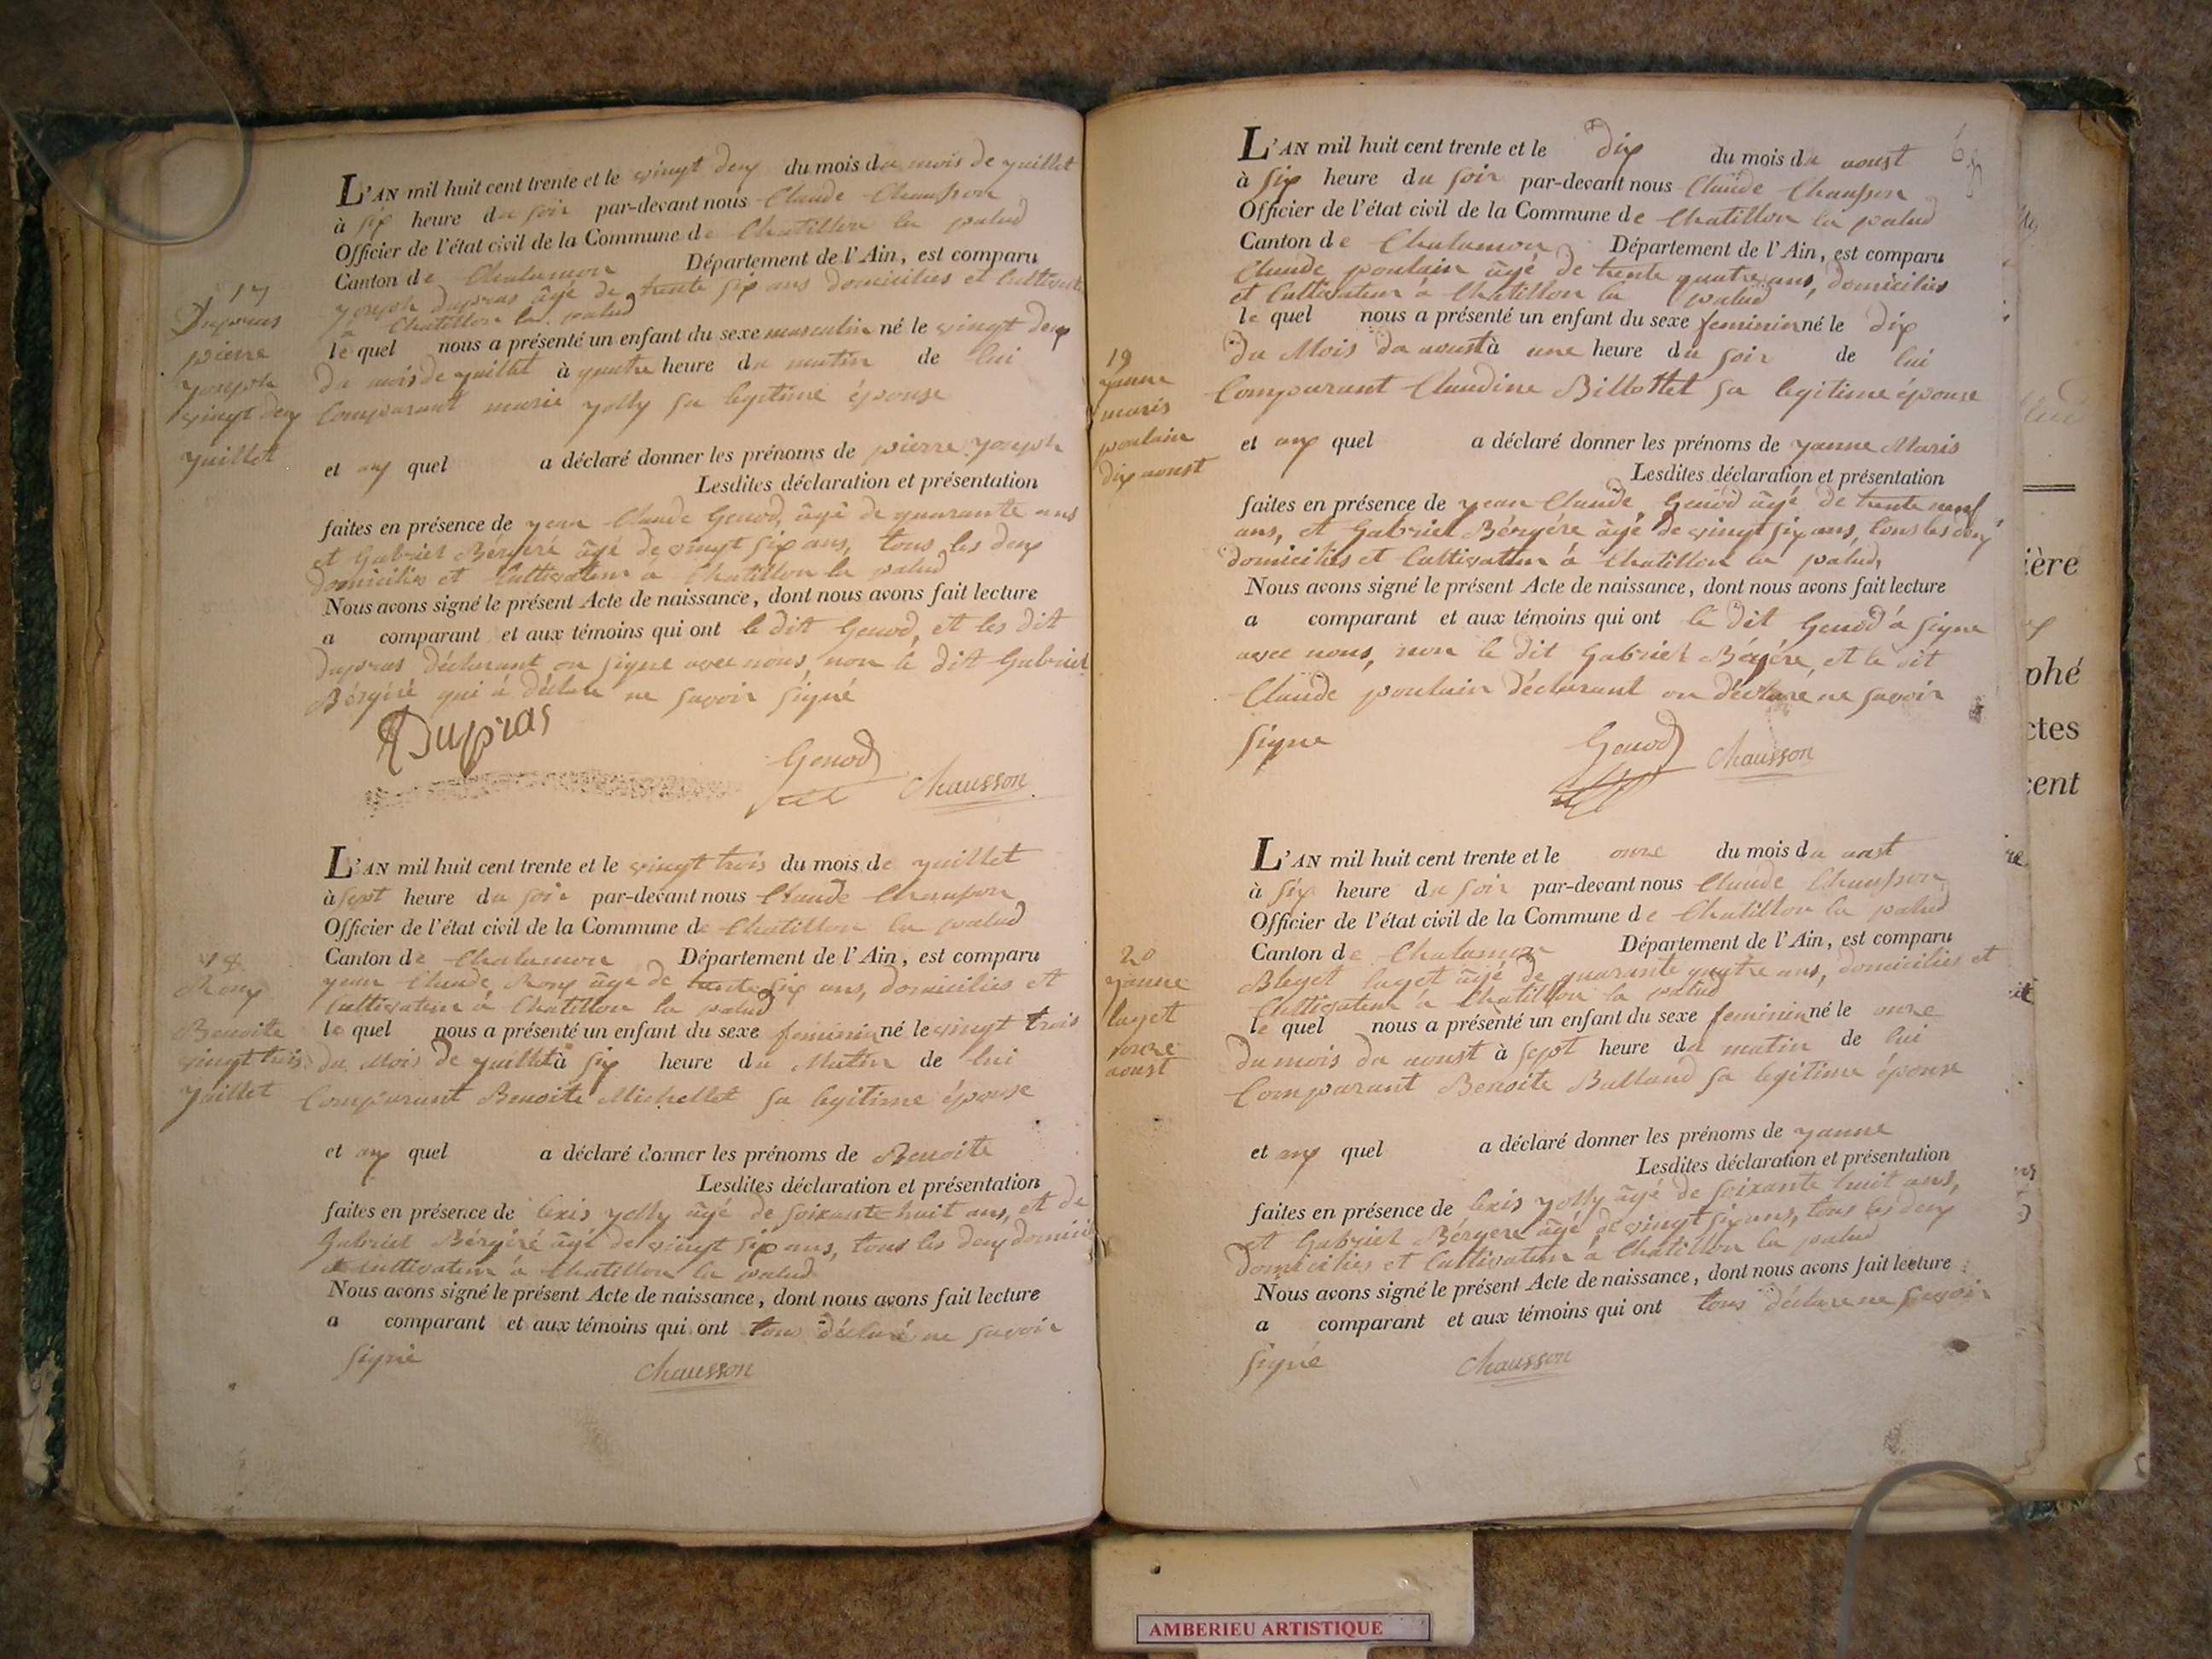 17
Dupras
pierre
yoseph
vingt deux
yuillet
L'AN mil huit cent trente et le vingt deux du mois du mois de yuillet
à six heure du soir par-devant nous Claude Chausson
Officier de l'état civil de la Commune de Chatillon la palud
Canton de Chalamon Département de l'Ain, est comparu
yoseph dupras âgé de trente six ans domicilies et Cultivat
à Chatillon la palud
le quel nous a présenté un enfant du sexe masculin né le vingt deux
du mois de yuillet à quatre heure du matin de lui
Comparant marie yolly sa legitime épouse
et aux quel a déclaré donner les prénoms de pierre yoseph
Lesdites déclaration et présentation
faites en présence de yean Claude Genod, âgé de quarante ans
et Gabriel Béryéré âgé de vingt six ans, tous les deux
domicilies et Cultivateur à Chatillon la palud
Nous avons signé le présent Acte de naissance, dont nous avons fait lecture
a comparant et aux témoins qui ont le dit Genod, et les dit
dupras déclarant on signe avec nous, non le dit Gabriel
Béryéré qui à déclare ne savoir signé
Dupras
Genod
Chausson
18
Rony
Benoite
vingt trois
yuillet
L'AN mil huit cent trente et le vingt trois du mois de yuillet
à sept heure du soir par-devant nous Claude Chausson
Officier de l'état civil de la Commune de Chatillon la palud
Canton de Chalamon Département de l'Ain, est comparu
yean Claude Rony âgé de trente six ans, domicilies et
Cultivateur à Chatillon la palud
le quel nous a présenté un enfant du sexe feminin né le vingt trois
du Mois de yuillet à six heure du Matin de lui
Comparant Benoite Michellet sa legitime épouse
et aux quel a déclaré donner les prénoms de Benoite
Lesdites déclaration et présentation
faites en présence de lexis yolly âgé de soixante huit ans, et de
Gabriel Béryéré âgé de vingt six ans, tous les deux domicil
et Cultivateur à Chatillon la palud
Nous avons signé le présent Acte de naissance, dont nous avons fait lecture
a comparant et aux témoins qui ont tous déclaré ne savoir
signé
Chausson
19
yanne
maris
poulain
dix aoust
L'AN mil huit cent trente et le dix du mois du aoust
à six heure du soir par-devant nous Claude Chausson
Officier de l'état civil de la Commune de Chatillon la palud
Canton de Chalamon Département de l'Ain, est comparu
Claude poulain âgé de trente quatre ans, domicilies
et Cultivateur à Chatillon la palud
le quel nous a présenté un enfant du sexe feminin né le dix
du Mois du aoust à une heure du soir de lui
Comparant Claudine Billottet sa legitime épouse
et aux quel a déclaré donner les prénoms de yanne Maris
Lesdites déclaration et présentation
faites en présence de yean Claude, Genod âgé de trente neuf
ans, et Gabriel Béryére âgé de vingt six ans, tous les deux
domicilies et Cultivateur à Chatillon la palud,
Nous avons signé le présent Acte de naissance, dont nous avons fait lecture
a comparant et aux témoins qui ont le dit Genod à signe
avec nous, non le dit Gabriel Béryére, et le dit
Claude poulain déclarant on déclaré ne savoir
signe
Genod
Chausson
20
yanne
layet
onze
aoust
L'AN mil huit cent trente et le onze du mois du aust
à six heure du soir par-devant nous Claude Chausson
Officier de l'état civil de la Commune de Chatillon la palud
Canton de Chalamon Département de l'Ain, est comparu
layet âgé de quarante quatre ans, domicilies et
Cultivateur à Chatillon la palud
le quel nous a présenté un enfant du sexe feminin né le onze
du mois du aoust à sept heure du matin de lui
Comparant Benoite Balland sa legitime épouse
et aux quel a déclaré donner les prénoms de yanne
Lesdites déclaration et présentation
faites en présence de lexis yolly âgé de soixante huit ans,
et Gabriel Béryere âgé de vingt six ans, tous les deux
domicilies et Cultivateur à Chatillon la palud
Nous avons signé le présent Acte de naissance, dont nous avons fait lecture
a comparant et aux témoins qui ont tous déclare ne savoir
signé
Chausson
ière
phé
ctes
cent
AMBERIEU ARTISTIQUE